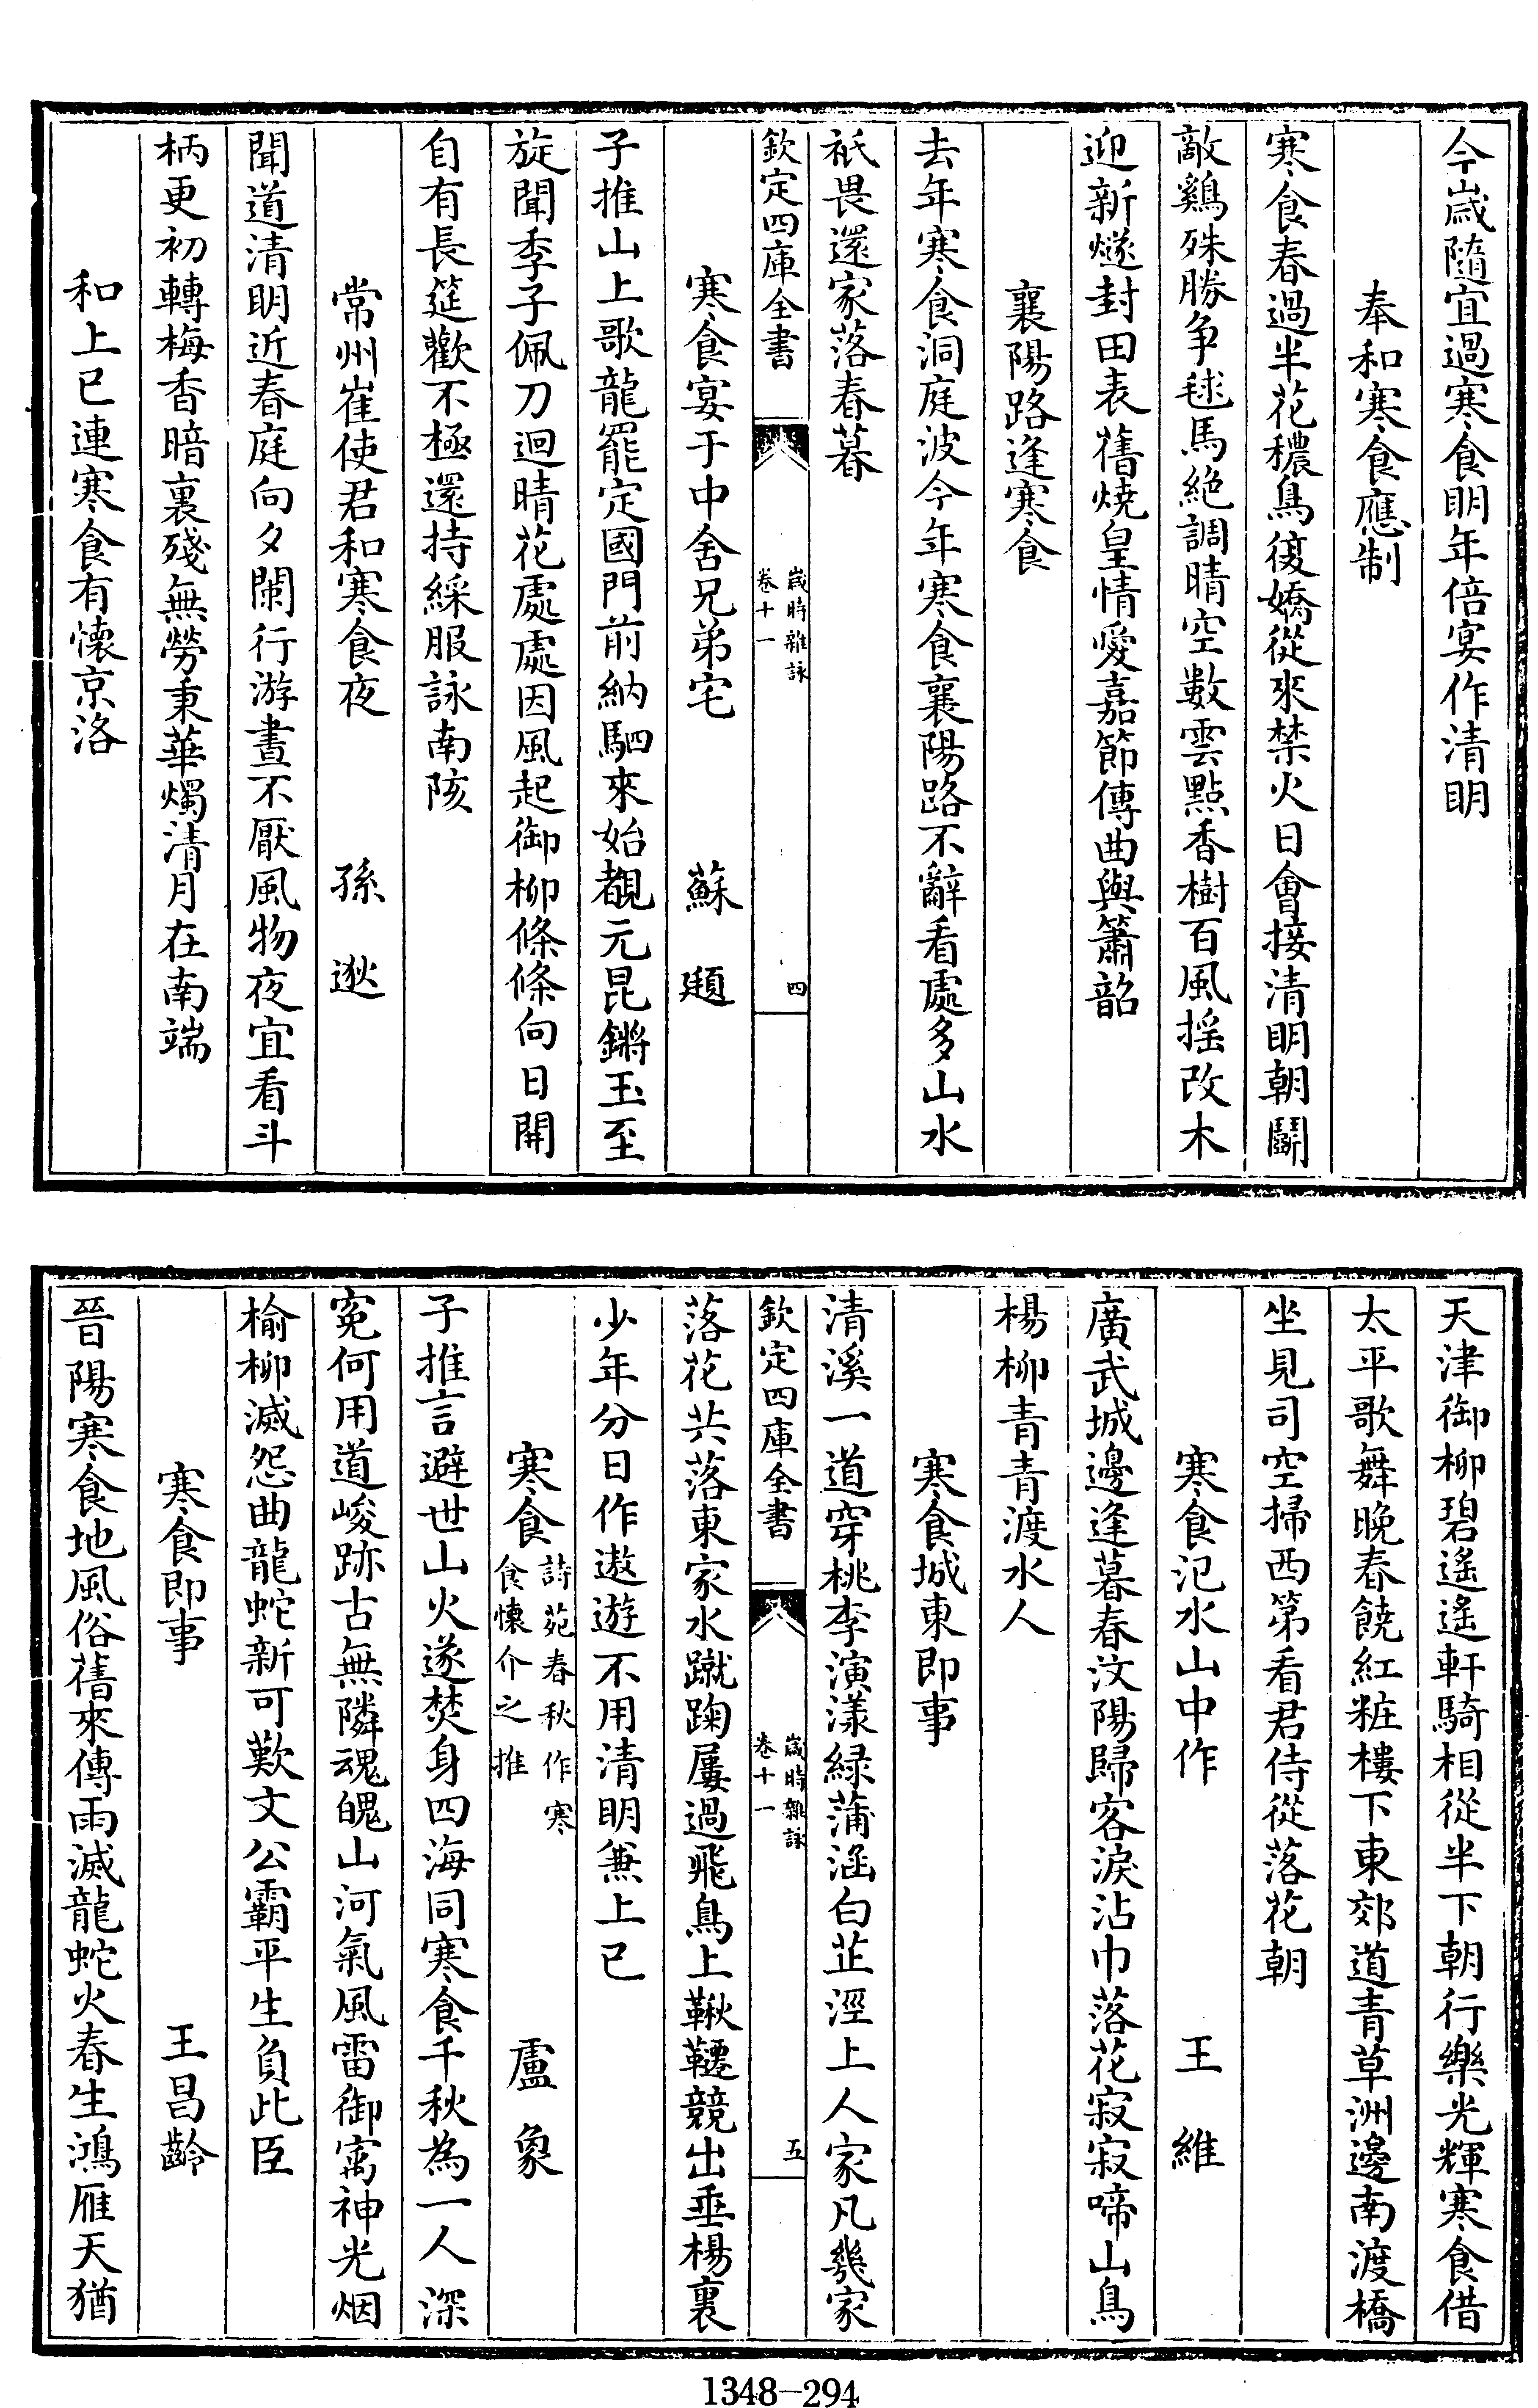 今歲隨宜過寒食明年倍宴作清明
奉和寒食應制
寒食春過半花穠鳥復嬌從來禁火日會接清明朝鬭
敵鷄殊勝争毬馬絶調晴空數雲點香樹百風摇改木
迎新燧封田表舊燒皇情愛嘉節傳曲與簫韶
襄陽路逢寒食
去年寒食洞庭波今年寒食襄陽路不辭看處多山水
祇畏還家落春暮
欽定四庫全書
歲時雜詠
卷十一
四
寒食宴于中舍兄弟宅 蘇頲
子推山上歌龍罷定國門前納駟來始覩元昆鏘玉至
旋聞季子佩刀迴晴花處處因風起御柳條條向日開
自有長筵歡不極還持綵服詠南陔
常州崔使君和寒食夜 孫逖
聞道清明近春庭向夕闌行游晝不厭風物夜宜看斗
柄更初轉梅香暗裏殘無勞秉華燭清月在南端
和上巳連寒食有懷京洛
天津御柳碧遙遙軒騎相從半下朝行樂光輝寒食借
太平歌舞晚春饒紅粧樓下東郊道青草洲邊南渡橋
坐見司空掃西第看君侍從落花朝
寒食氾水山中作 王維
廣武城邊逢暮春汶陽歸客淚沾巾落花寂寂啼山鳥
楊柳青青渡水人
寒食城東即事
清溪一道穿桃李演漾緑蒲涵白芷涇上人家凡幾家
欽定四庫全書
歲時雜詠
卷十一
五
落花共落東家水蹴踘屢過飛鳥上鞦韆競出垂楊裏
少年分日作遨遊不用清明兼上巳
寒食 詩苑春秋作寒食懷介之推 盧象
子推言避世山火遂焚身四海同寒食千秋為一人深
寃何用道峻跡古無隣魂魄山河氣風雷御寓神光烟
榆柳滅怨曲龍蛇新可歎文公霸平生負此臣
寒食即事 王昌齡
晉陽寒食地風俗舊來傳雨滅龍蛇火春生鴻雁天猶
1348-294